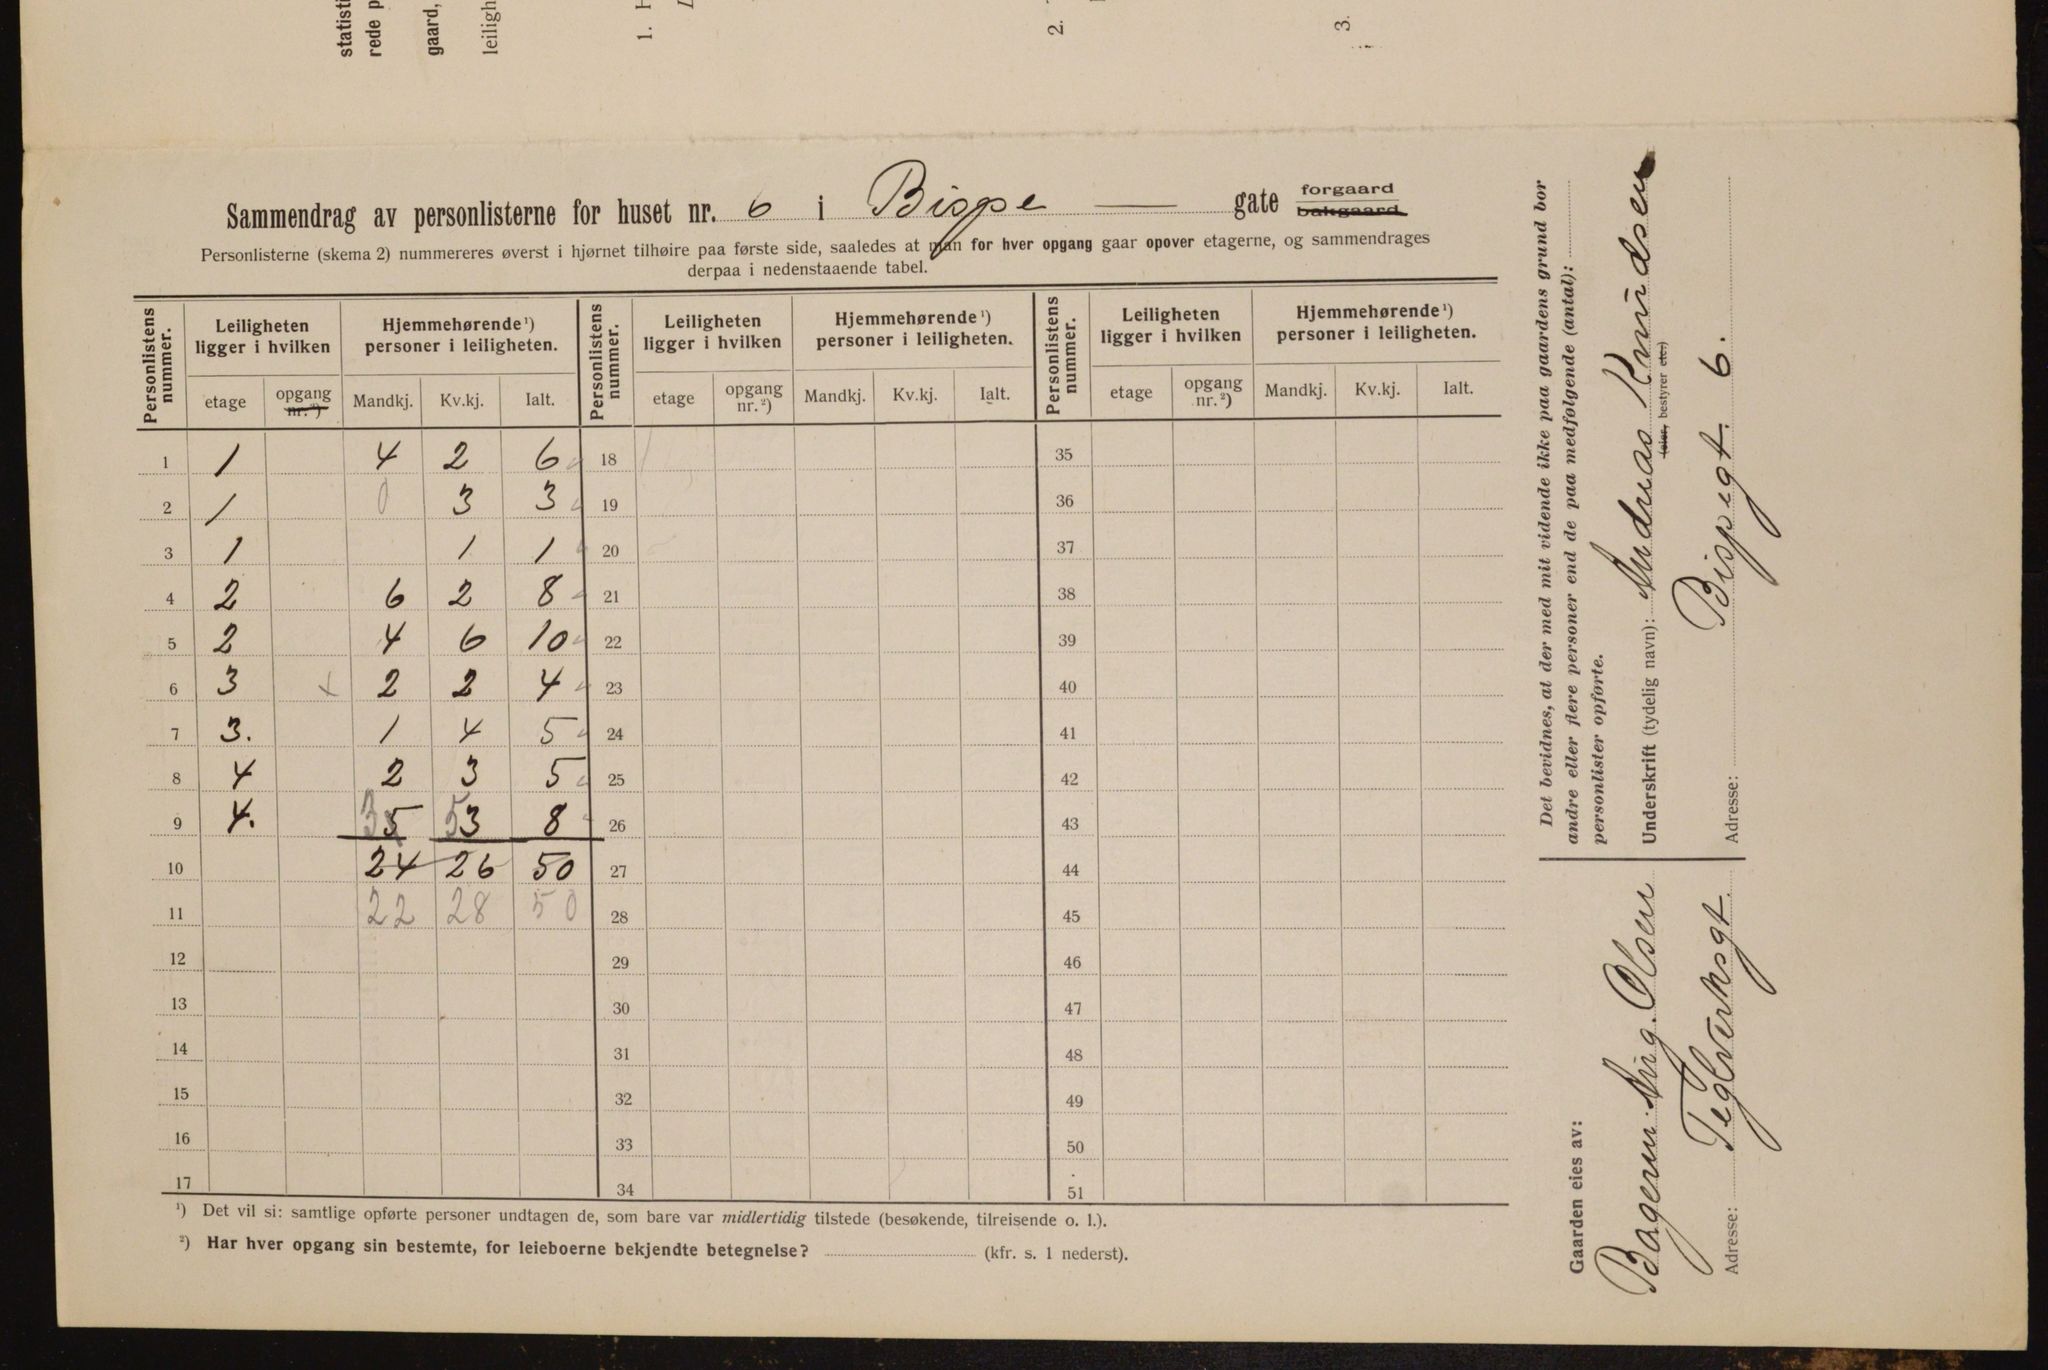 statisti
rede p
gaard,
leiligh
1. H
2.
3.
Sammendrag av personlisterne for huset nr. 6 i Bispe — gate forgaard bakgaard.
Personlisterne (skema 2) nummereres øverst i hjørnet tilhøire paa første side, saaledes at man for hver opgang gaar opover etagerne, og sammendrages
derpaa i nedenstaaende tabel.
Personlistens nummer. Leiligheten ligger i hvilken Hjemmehørende ¹) personer i leiligheten. Personlistens nummer. Leiligheten ligger i hvilken Hjemmehørende ¹) personer i leiligheten. Personlistens nummer. Leiligheten ligger i hvilken Hjemmehørende ¹) personer i leiligheten.
etage opgang nr. ²) Mandkj. Kv.kj. Ialt. etage opgang nr. ²) Mandkj. Kv.kj. Ialt. etage opgang nr. ²) Mandkj. Kv.kj. Ialt.
1 1 4 2 6 18 35
2 1 0 3 3 19 36
3 1 1 1 20 37
4 2 6 2 8 21 38
5 2 4 6 10 22 39
6 3 x 2 2 4 23 40
7 3. 1 4 5 24 41
8 4 2 3 5 25 42
9 4. 3 5 5 3 8 26 43
10 24 26 50 27 44
11 22 28 50 28 45
12 29 46
13 30 47
14 31 48
15 32 49
16 33 50
17 34 51
¹) Det vil si: samtlige opførte personer undtagen de, som bare var midlertidig tilstede (besøkende, tilreisende o. l.).
²) Har hver opgang sin bestemte, for leieboerne bekjendte betegnelse? (kfr. s. 1 nederst).
Det bevidnes, at der med mit vidende ikke paa gaardens grund bor
andre eller flere personer end de paa medfølgende (antal):
personlister opførte.
Underskrift (tydelig navn): Andreas Knudsen
(eier, bestyrer etc.)
Adresse: Bispegt. 6.
Gaarden eies av:
Bagerm. Aug. Olsen
Adresse: Teglverksgt.